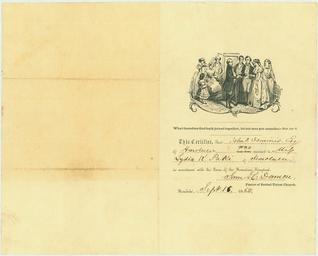 What therefore God hath joined together, let not man put asunder.
This Certifies, that John O. Dominis, Esq
of Honolulu was married to Miss
Lydia K. Paki of Honolulu
in accordance with the Laws of the Hawaiian Kingdom.
Pastor of Bethel Union Church.
Honolulu, Sept 16, 1862.